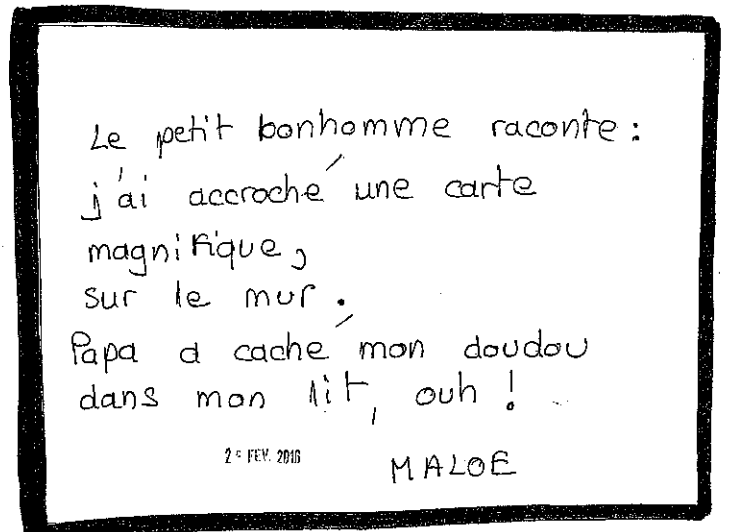 Le petit bonhomme raconte :
j'ai accroché une carte
magnifique,
sur le mur.
Papa a caché mon doudou
dans mon lit, ouh !
FEV. 2016
MALOE